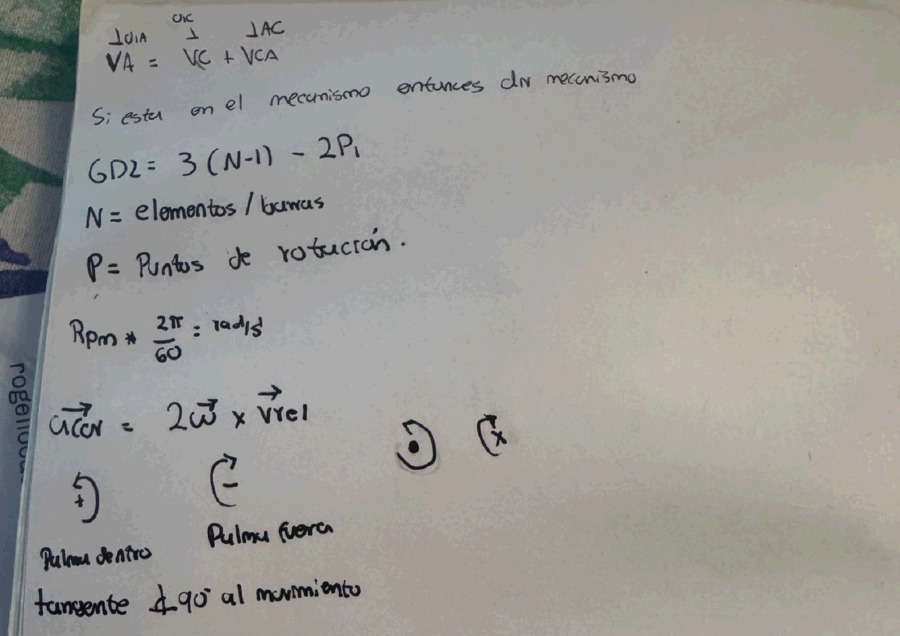 ⊥O1A OIC ⊥ ⊥AC
VA = VC + VCA
Si esta en el mecanismo entonces div mecanismo
GD2 = 3 (N-1) - 2P1
N = elementos / barras
P = Puntos de rotación.
Rpm * 2π/60 = rad/s
acor = 2ω x vrel
+ - • x
Palma dentro Palma fuera
tangente ⊥ 90° al movimiento